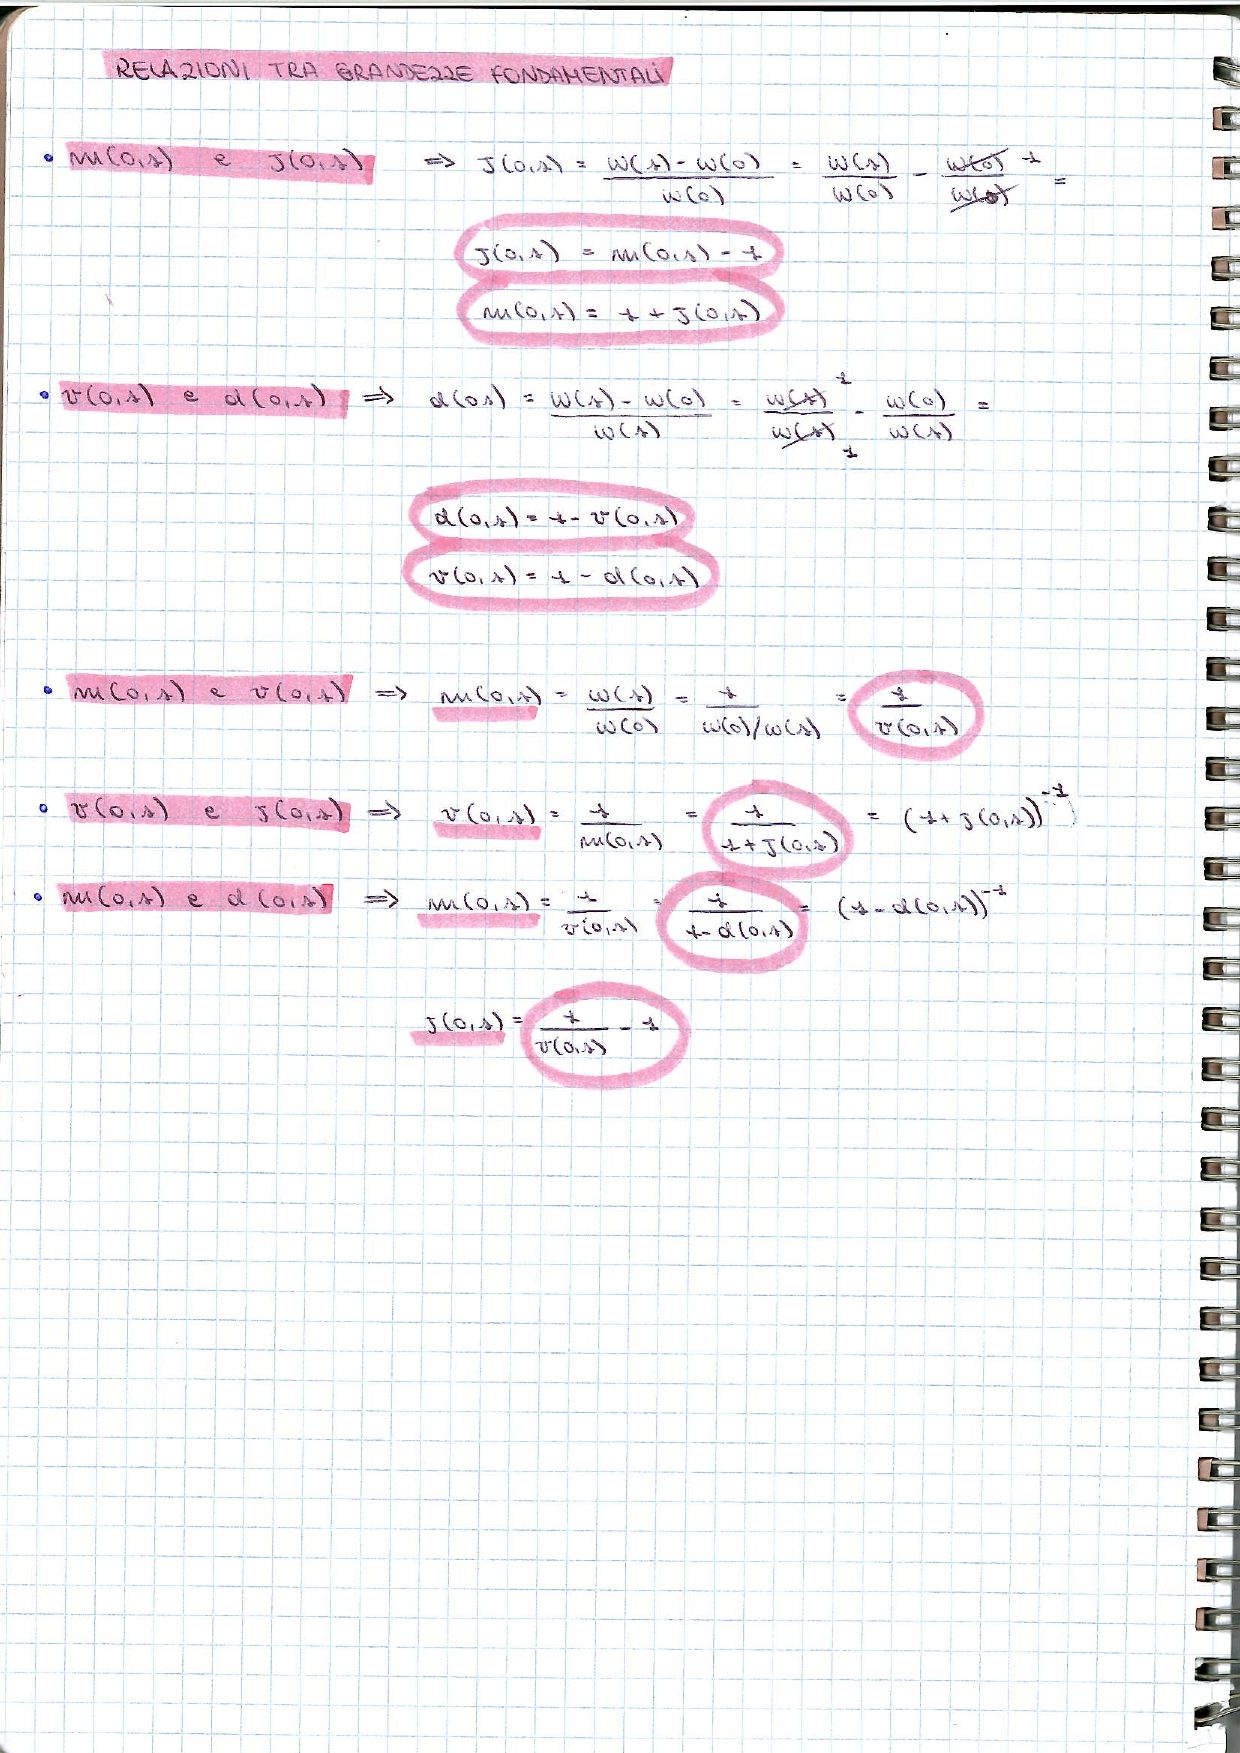 RELAZIONI TRA GRANDEZZE FONDAMENTALI
• m(0,s) e j(0,s) ⇒ j(0,s) = (w(s) - w(0))/w(0) = w(s)/w(0) - w(0)/w(0) 1 =
j(0,s) = m(0,s) - 1
m(0,s) = 1 + j(0,s)
• v(0,s) e d(0,s) ⇒ d(0s) = (w(s) - w(0))/w(s) = w(s)/w(s) 1 1 - w(0)/w(s) =
d(0,s) = 1 - v(0,s)
v(0,s) = 1 - d(0,s)
• m(0,s) e v(0,s) ⇒ m(0,s) = w(s)/w(0) = 1/(w(0)/w(s)) = 1/v(0,s)
• v(0,s) e j(0,s) ⇒ v(0,s) = 1/m(0,s) = 1/(1+j(0,s)) = (1+j(0,s))^-1
• m(0,s) e d(0,s) ⇒ m(0,s) = 1/v(0,s) = 1/(1-d(0,s)) = (1-d(0,s))^-1
j(0,s) = 1/v(0,s) - 1